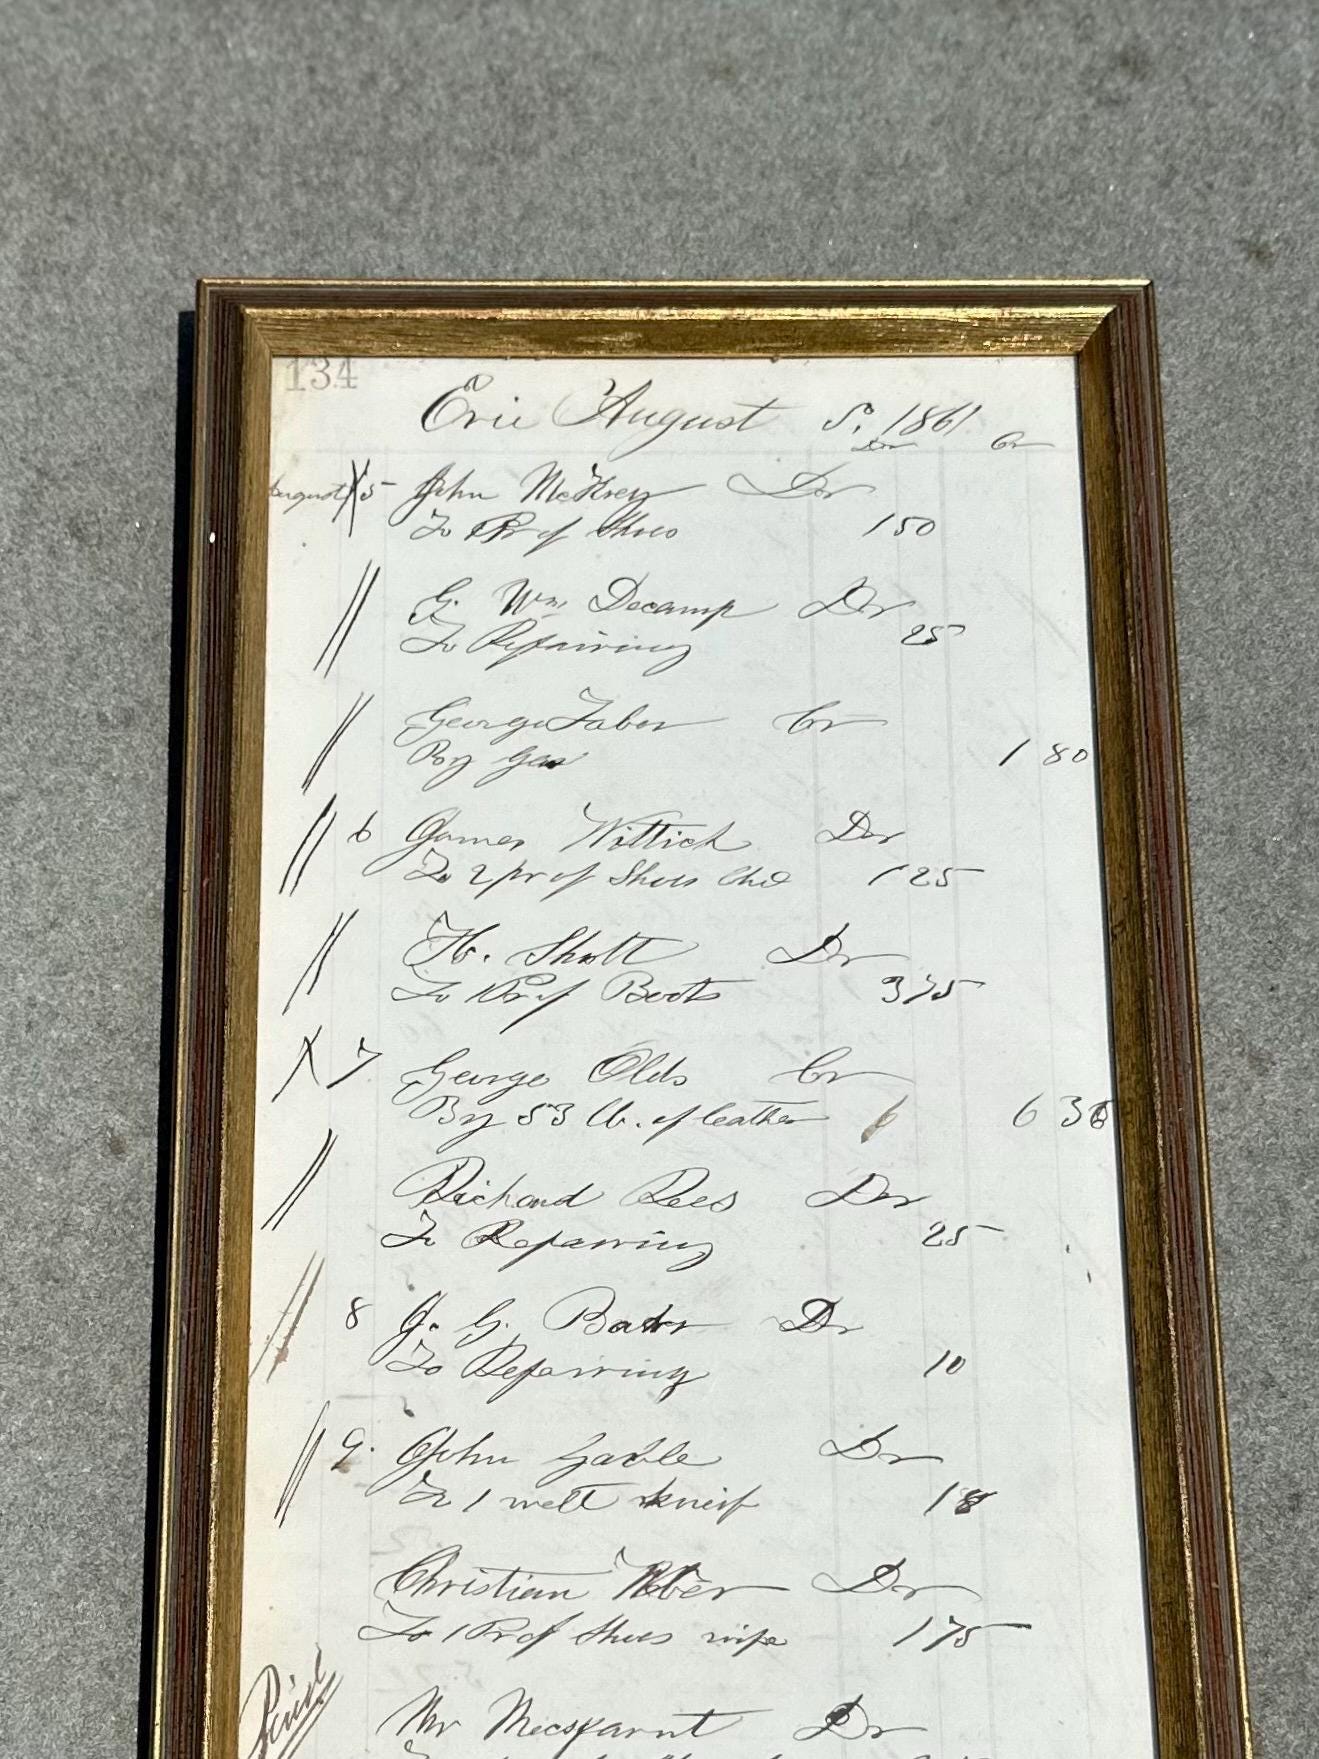 134
Erie August 5. 1861
Dr Cr
August 5 John McKrey Dr
To Pr of Shoes 150
G. Wm Decamp Dr
To Repairing 25
George Taber Cr
By Gas 1 80
6 James Wittich Dr
To 2 pr of Shoes Chd 125
H. Shott Dr
To 1 Pr of Boots 375
7 George Olds Cr
By 53 lb. of leather 6 36
Richard Rees Dr
To Repairing 25
8 J. G. Dr
To Repairing 10
9. John Gable Dr
To 1 welt kneif 18
Christian Dr
To 1 Pr of Shoes wife 175
Paid
Mr Dr